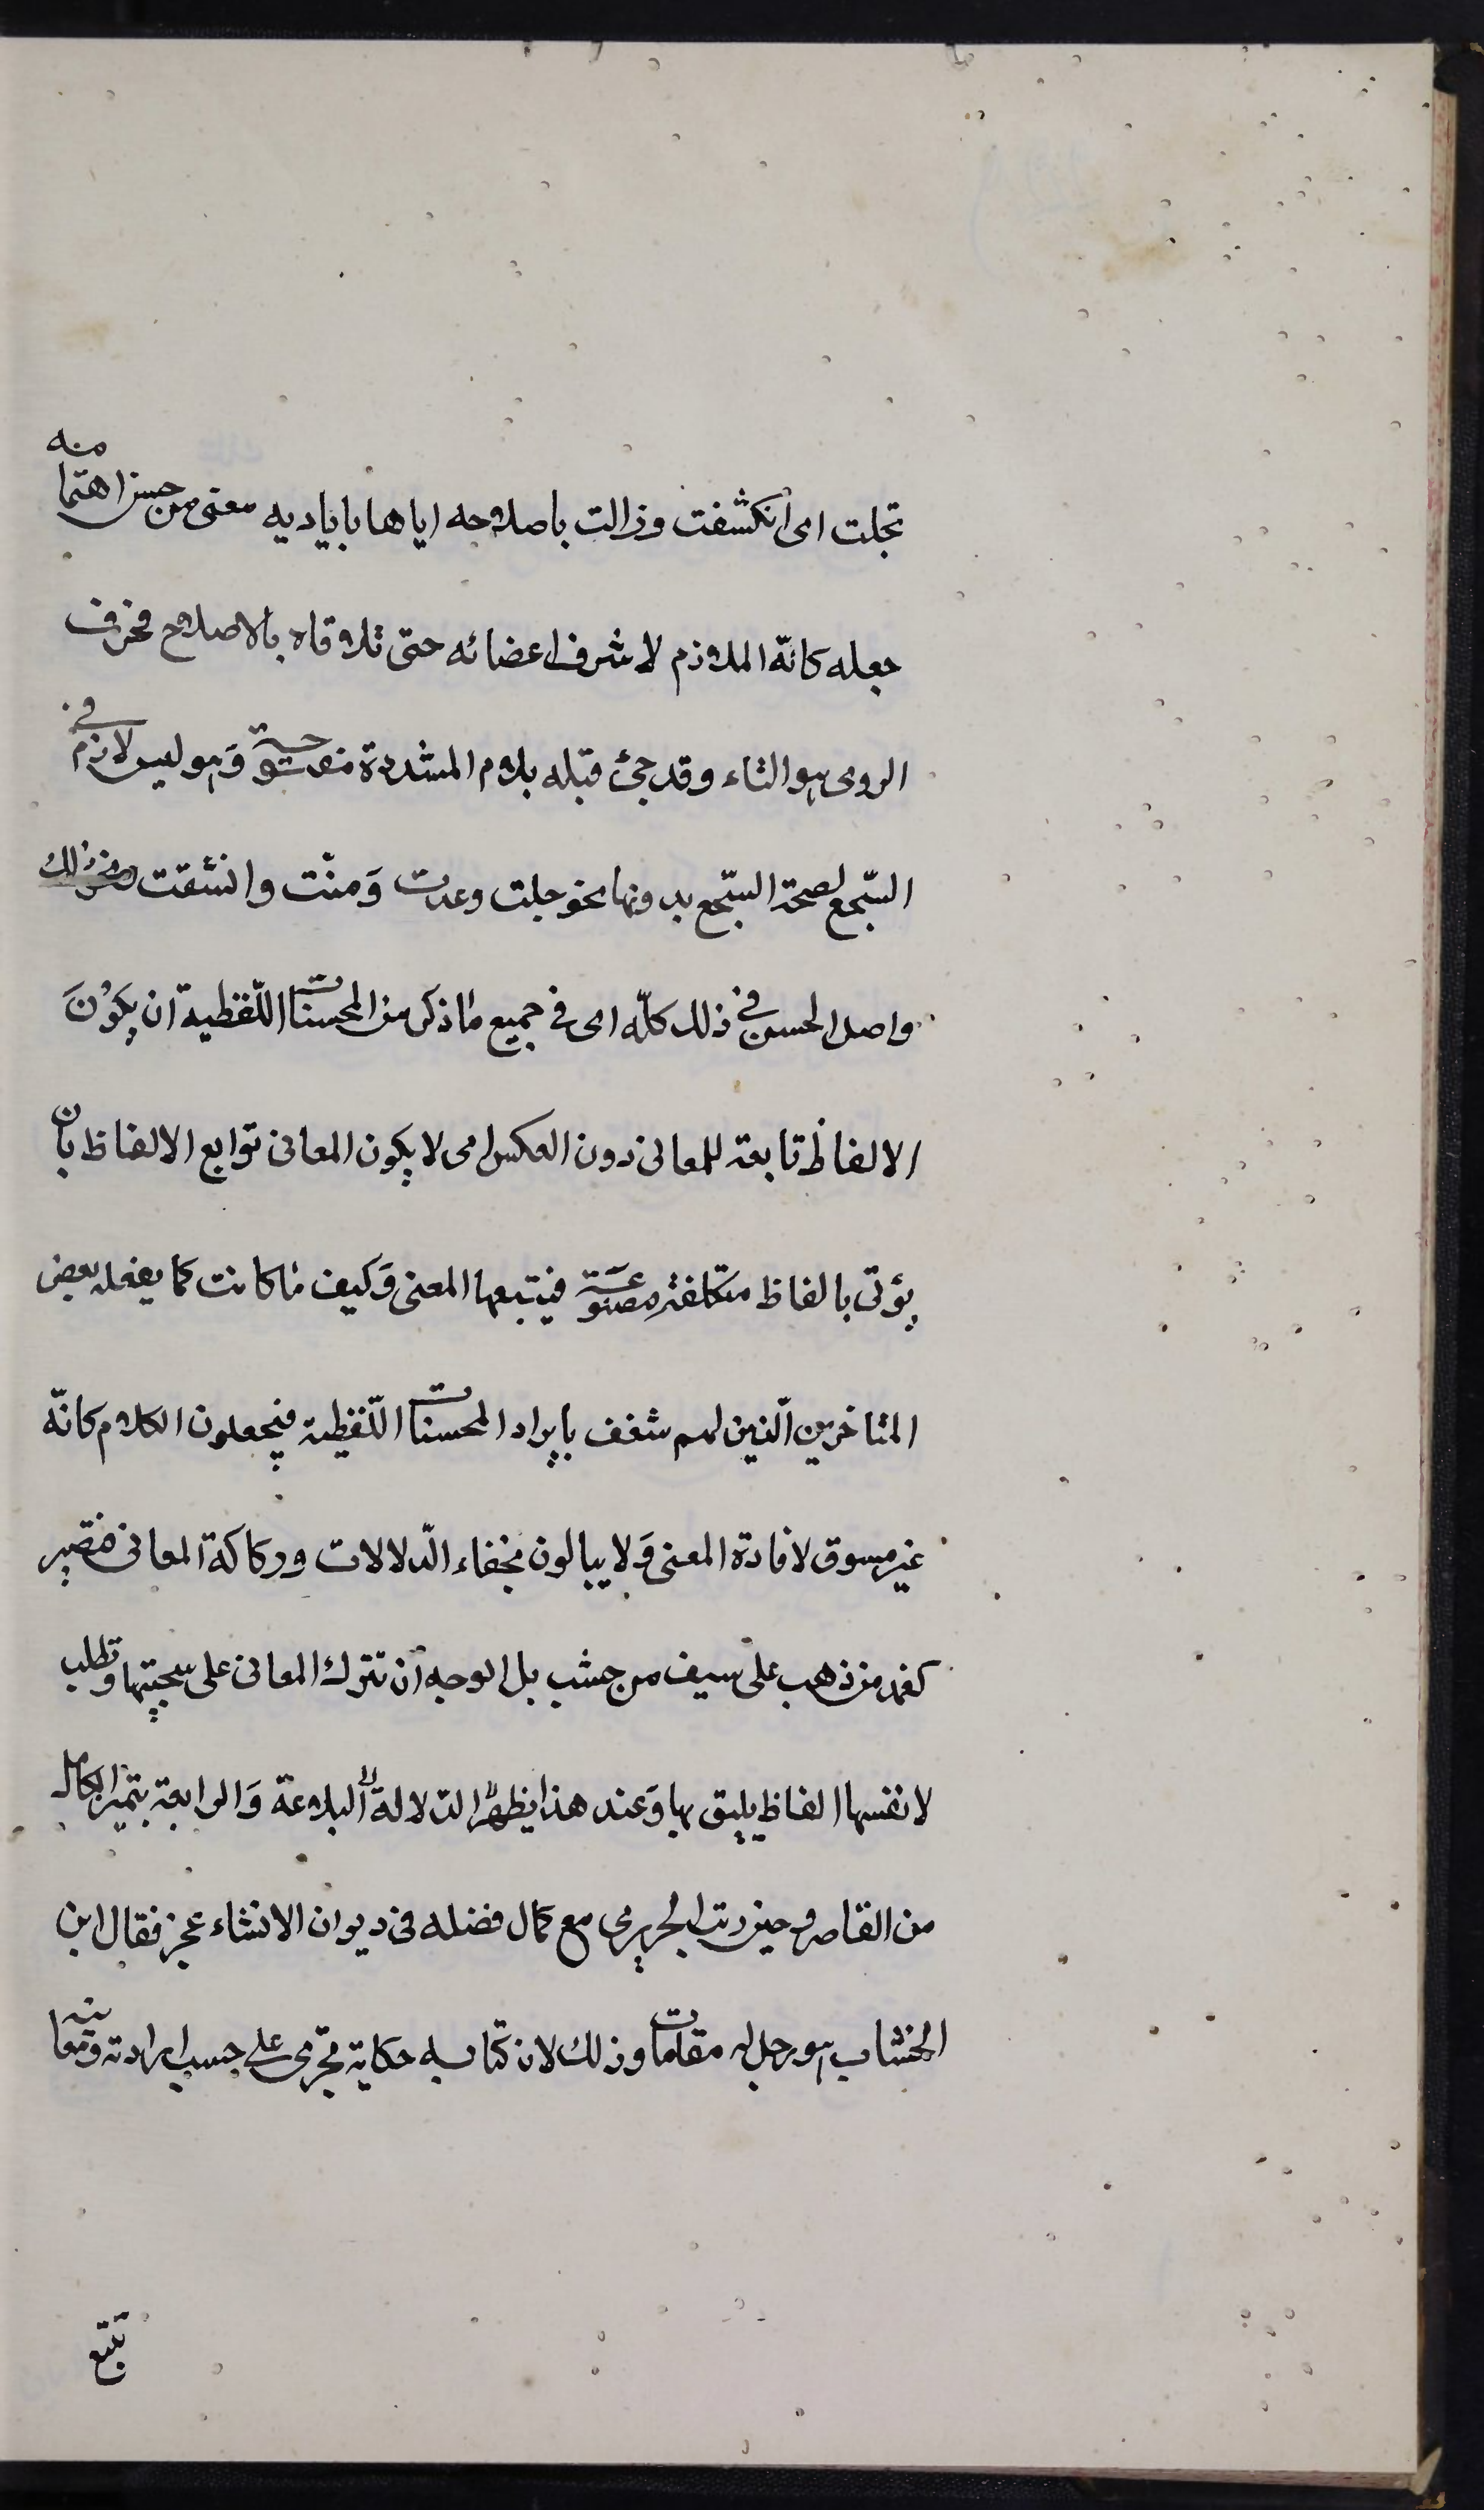 تجلت اى انكشفت وزالت باصلاحه اياها باياديه معنى من حسن اهتما منه
جعله كانّه الملازم لاشرف اعضائه حتى تلاقاه بالاصلاح فحرف
الروى هو التاء وقد جئ قبله بلام المشددة مفتوحة وَهو ليس لازم فى
السّجع لصحة السّجع بدونها نحو جلت وعدت وَمنّت وانشقت ونحو ذلك
واصل الحسن فى ذلك كلّه اى فى جميع ما ذكر من المحسنات اللّفظية ان يكوْنَ
الالفاظ تابعة للمعانى دون العكس اى لا يكون المعانى توابع الالفاظ بان
يؤتى بالفاظ متكلفة مصنوعة فيتبعها المعنى وَكيف ما كانت كما يفعله بعض
المتاخرين الّذين لهم شغف بايراد المحسنات اللّفظية فيجعلون الكلام كانّه
غير مسوق لافادة المعنى وَلا يبالون بخفاء الدّلالات وركاكة المعانى فيصير
كغمد من ذهب على سيف من خشب بل الوجه ان تترك المعانى على سجيتها وتطلب
لانفسها الفاظ يليق بها وَعند هذا يظهر الدّلالة البلاغة وَالرابعة يتميز الكامل
من القاصر وحين رتب الحريرى مع كمال فضله فى ديوان الانشاء عجز فقال ابن
الخشاب هو رجل له مقامات وذلك لان كتابه حكاية تجرى على حسب ارادته ومعانيه
تتبع